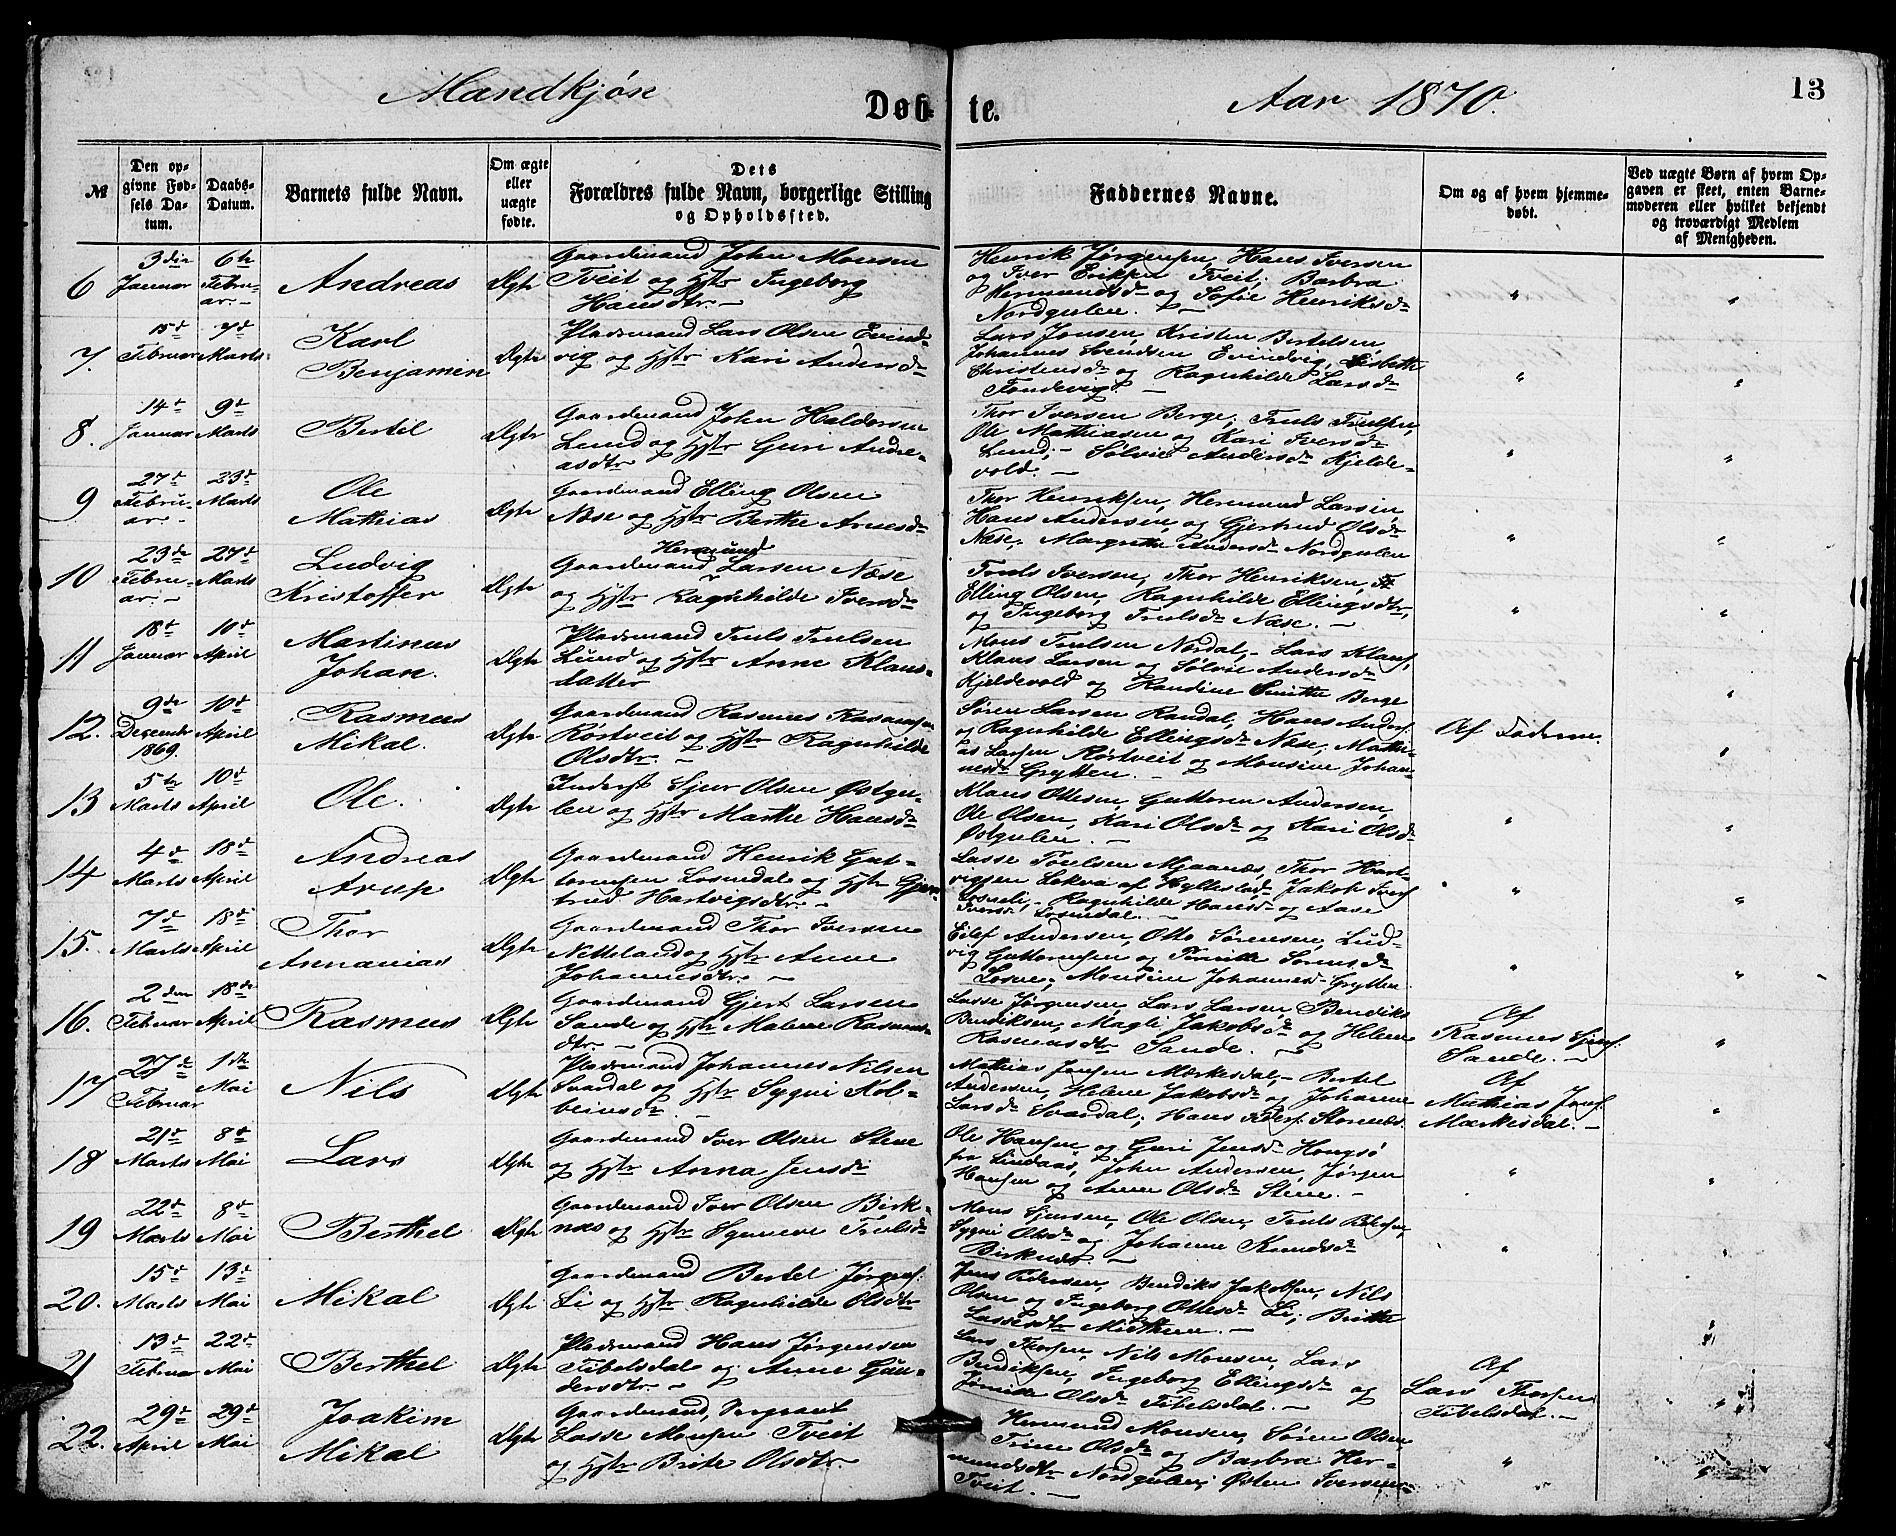 Mandkjøn
Døb-
te.
Aar 1870.
13
№
Den op-
givne Fød-
sels Da-
tum.
Daabs-
Datum.
Barnets fulde Navn.
Om ægte
eller
uægte
fødte.
Dets
Forældres fulde Navn, borgerlige Stilling
og Opholdssted.
Faddernes Navne.
Om og af hvem hjemme-
døbt.
Ved uægte Børn af hvem Op-
gaven er skeet, enten Barne-
moderen eller hvilket bekjendt
og troværdigt Medlem
af Menigheden.
6
3die
Januar
6te
Febru-
ar. -
Andreas
Ægte
Gaardmand John Monsen
Tveit og Hstr Ingeborg
Hansdtr. -
Henrik Jørgensen, Hans Iversen
og Iver Eriksen Tveit; Barbra
Hermundsdr og Sofie Henriksdr
Nordgulen. -
7.
15d
Februar
7d
Marts
Karl
Benjamin
Ægte
Pladsmand Lars Olsen Evind-
vig og Hstr Kari Andersdr
Lars Jonsen, Kristen Bertelsen
Johannes Svendsen Evindvig, Lisbeth
Christensdr og Ragnhilde Larsdr
8.
14d
Januar
9d
Marts
Bertil
Ægte
Gaardmand John Haldorsen
Lund og Hstr Guri Andre-
asdtr
Thor Iversen Berge, Truls Trulsen,
Ole Mathiasen og Kari Iversdr
Lund; - Sølvie Andersdr Kjelde-
vold. -
9
27d
Febru-
ar. -
23d
Marts
Ole
Mathias
Ægte
Gaardmand Elling Olsen
Næse og Hstr Berthe Arnesdr
Thor Henriksen, Hermund Larsen
Hans Andersen og Gjertrud Olsdr
Næse; Margrethe Andersdr Nordgulen
10
23de
Febru-
ar. -
27d
Marts
Ludvig
Kristoffer
Ægte
Hermund
Gaardmand Larsen Næse
og Hstr Ragnhilde Iversdr
Truls Iversen, Thor Henriksen,
Elling Olsen, Ragnhilde Ellingsdtr,
og Ingeborg Trulsdr Næse. -
11
18d
Januar
10d
April
Martinus
Johan.
Ægte
Pladsmand Truls Trulsen
Lund og Hstr Anne Klaus-
datter
Mons Trulsen Nordal, - Lars Klaus.
Klaus Larsen og Sølvie Andersdr
Kjeldevold og Randine Smith Berge
12.
9de
Decembr
1869.
10d
April
Rasmus
Mikal.
Ægte
Gaardmand Rasmus Rasmussen
Rørtveit og Hstr Ragnhilde
Olsdtr. -
Søren Larsen Randal, Hans Anders.
og Ragnhilde Ellingsdr Næse, Mathi-
as Larsen Rørtveit og Monsine Johan-
nesdr Grytten. -
Af Faderen.
13
5te
Marts
10d
April
Ole.
Ægte
Inderst Sjur Olsen Østgu-
len og Hstr Marthe Hansdr
Klaus Ottesen, Guttorm Andersen,
Ole Olsen, Kari Olsdr og Kari Olsd
Østgulen. -
14
4d
Marts
18d
April
Andreas
Arup
Ægte
Gaardmand Henrik Gut-
tormsen Losnedal og Hstr Gjer-
trud Hartvigsdtr. -
Lasse Troelsen Mjaanes, Thor Hart-
vigsen Lekva af Hyllestad, Jakob Ivers.
- Ragnhilde Hansdr og Aase
Iversd. Losnedal. -
15.
7d
Marts
18d
April
Thor
Annanias
Ægte
Gaardmand Thor Iversen
Netteland og Hstr Anne
Johannesdtr. -
Eilef Andersen, Otto Sørensen, Lud-
vig Guttormsen og Sørensdr
Losne; Monsine Johannesd. Grytten
16.
2den
Februar
18de
April
Rasmus
Ægte
Gaardmand Gjert Larsen
Sande og Hstr Malene Rasmus-
dtr. -
Lasse Jørgensen, Lars Larsen, Bendik
Bendiksen, Magli Jakobsdr og Helene
Rasmusdtr Sande. -
Af
Rasmus Sjurs.
Sande. -
17
27de
Februar
1ste
Mai
Nils
Ægte
Pladsmand Johannes Nilsen
Svardal og Hstr Sygni Kol-
beinsdr.
Mathias Jonsen Mærkesdal, - Bertel
Andersen, Helene Jakobsdr og Johanne
Larsdr Svardal; Hans
Af
Mathias Jons.
Mærkesdal. -
18
21d
Marts
8d
Mai
Lars
Ægte
Gaardmand Iver Olsen Stene
og Hstr Anna Jensdr
Ole Hansen og Guri Jensdr Hougsø
fra Lindaas, John Andersen, Jørgen
Hansen og Anne Olsdr Stene. -
19
22d
Marts
8d
Mai
Berthel
Ægte
Gaardmand Iver Olsen Birk-
næs og Hstr Synneve Trulsdr
Mons Sjursen, Ole Olsen, Truls
Sygni Olsdr og Johanne Knudsdr
Birknæs. -
20.
15d
Marts
13d
Mai
Mikal
Ægte
Gaardmand Bertel Jørgens.
Li og Hstr Ragnhilde Olsdtr
Jens Pedersen, Bendik Jakobsen, Nils
Olsen og Ingeborg Ottesdr Li; Britha
Lassesdtr Midttun. -
21
13d
Februar
22d
Mai
Berthel
Ægte
Pladsmand Hans Jørgensen
Tibelsdal og Anne Gun-
dersdtr. -
Lars Thorsen, Nils Monsen, Lars
Bendiksen, Ingeborg Ellingsdr og
Olsdr Tibelsdal. -
Af
Lars Thorsen
Tibelsdal. -
22.
29d
April
29d
Mai
Joakim
Mikal
Ægte
Gaardmand, Sergeant
Lasse Monsen Tveit
og Hstr Brite Olsdtr.
Hermund Monsen, Søren Olsen
Trine Olsdr og Barbra Her-
mundsdtr Nordgulen; Østen Iversen
Tveit. -